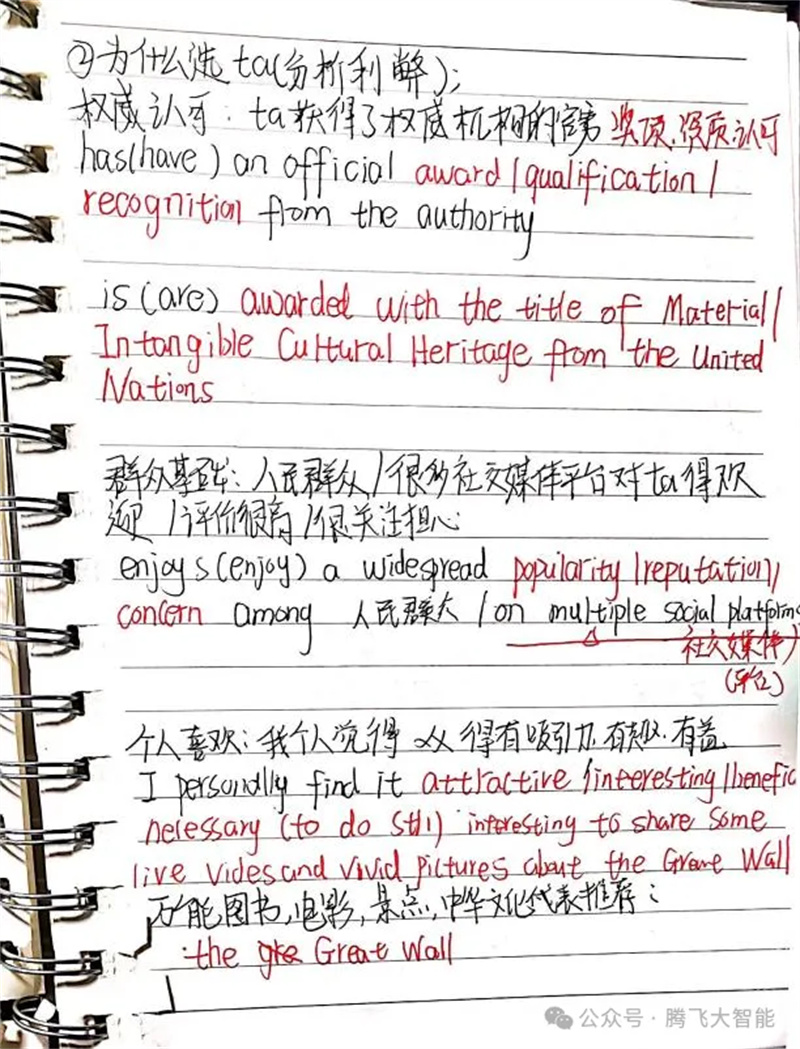 ②为什么选ta(分析利弊);
权威认可:ta获得了权威机构的官方奖项、资质、认可
has(have) an official award/qualification/
recognition from the authority
is(are) awarded with the title of Material/
Intangible Cultural Heritage from the United
Nations
群众基础:人民群众/很多社交媒体平台对ta得欢
迎/评价很高/很关注担心
enjoys(enjoy) a widespread popularity/reputation/
concern among 人民群众/on multiple social platforms
社交媒体
(平台)
个人喜欢:我个人觉得 从 得有吸引力、有趣、有益
I personally find it attractive/interesting/benefic
necessary (to do sth) interesting to share some
live vides and vivid pictures about the Great Wall
万能图书,电影,景点,中华文化代表推荐:
the gre Great Wall
公众号·腾飞大智能